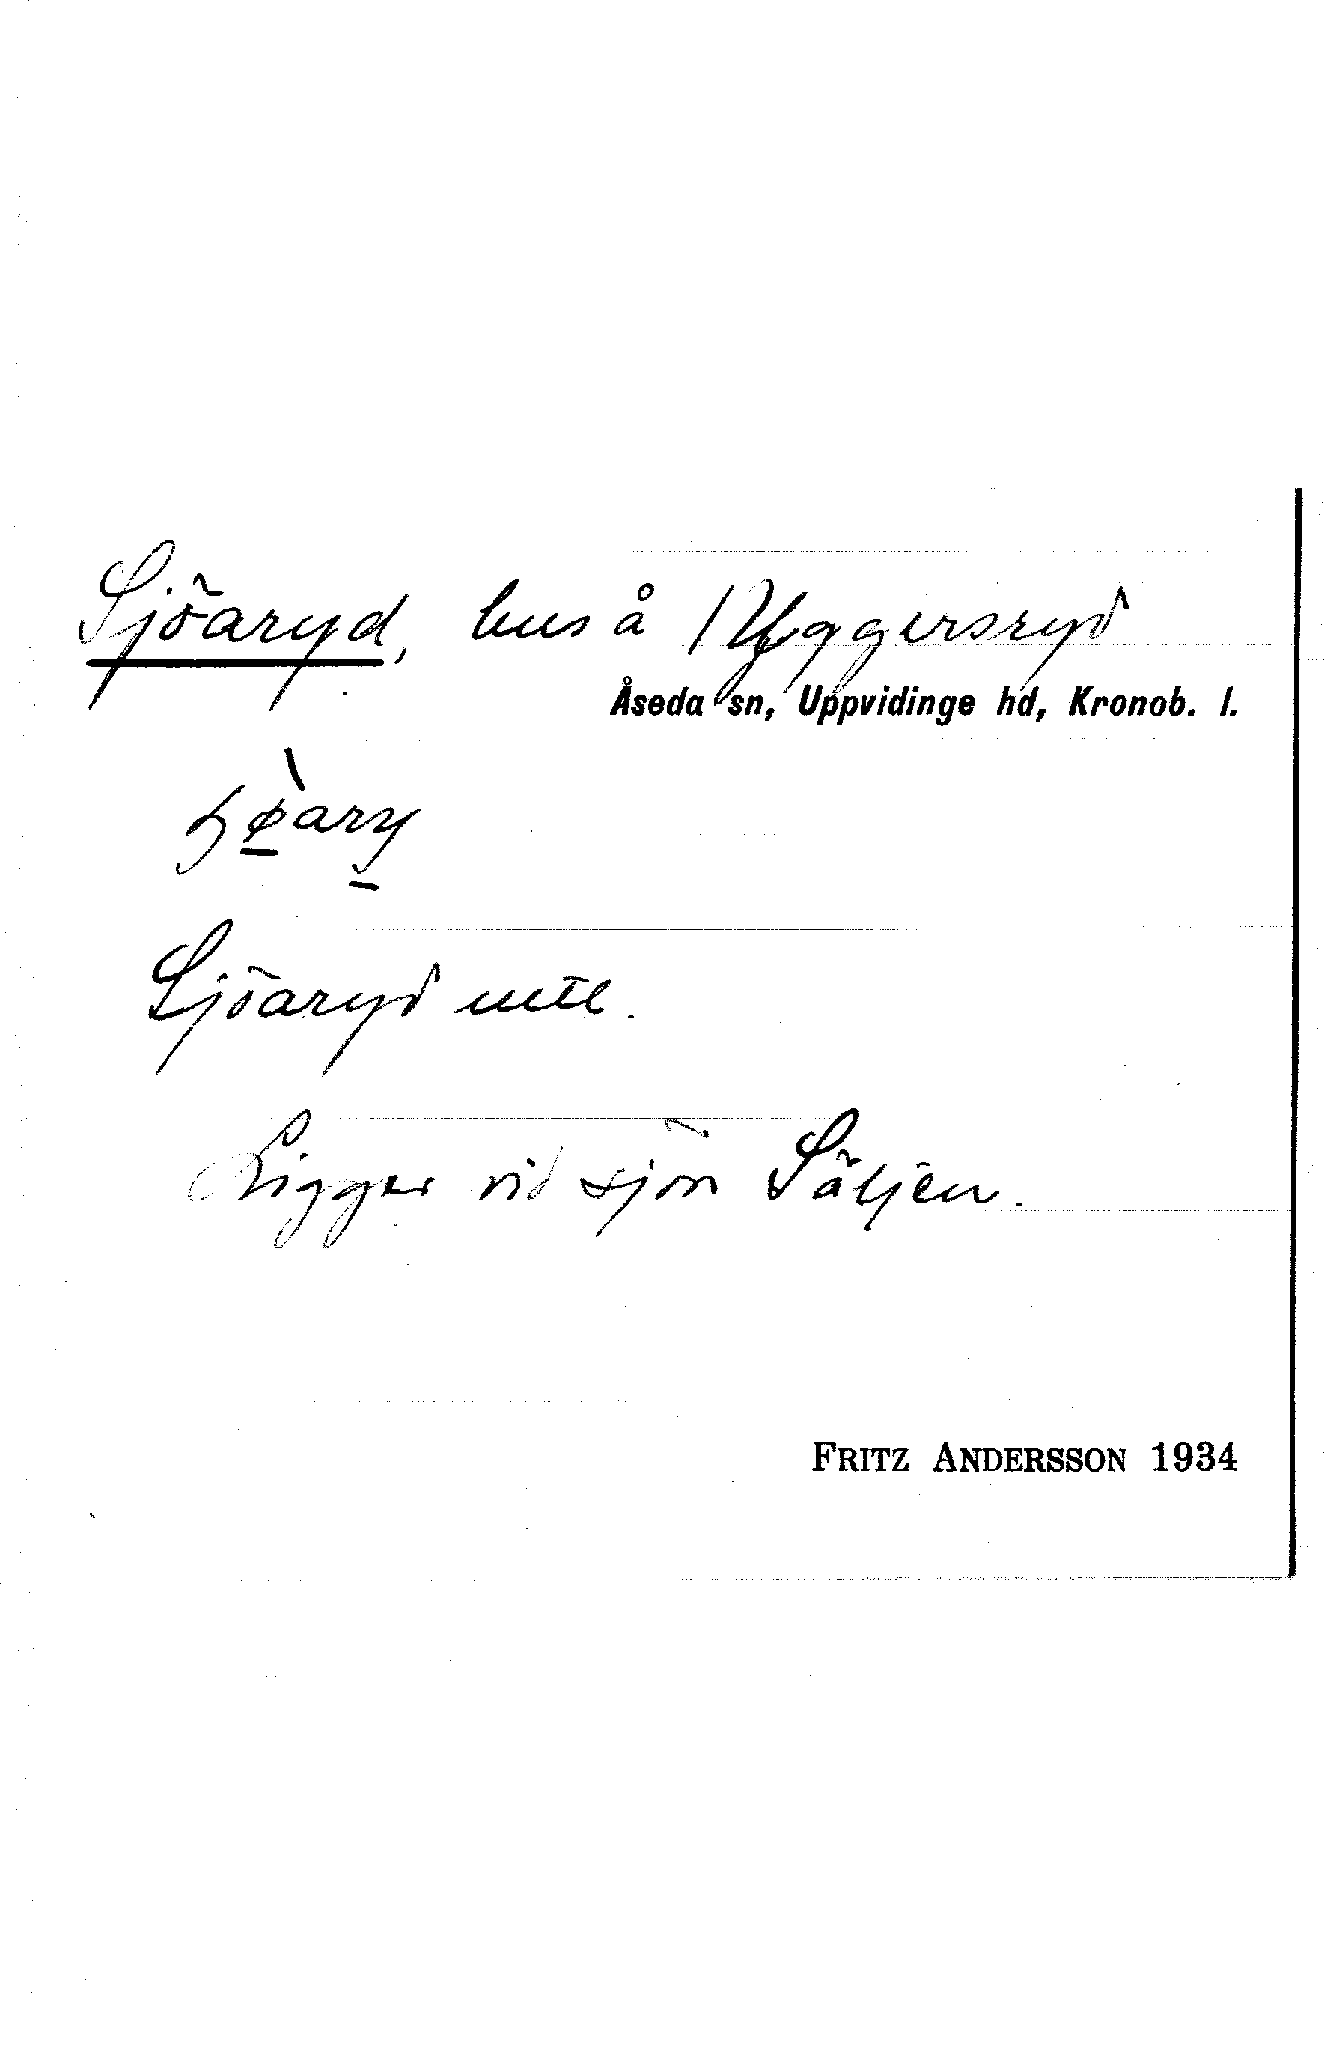 Sjöaryd, hus å 1 Yggersryd
Åseda sn, Uppvidinge hd, Kronob. l.
Sjöaryd mtl.
Ligger vid sjön Säljen.
FRITZ ANDERSSON 1934